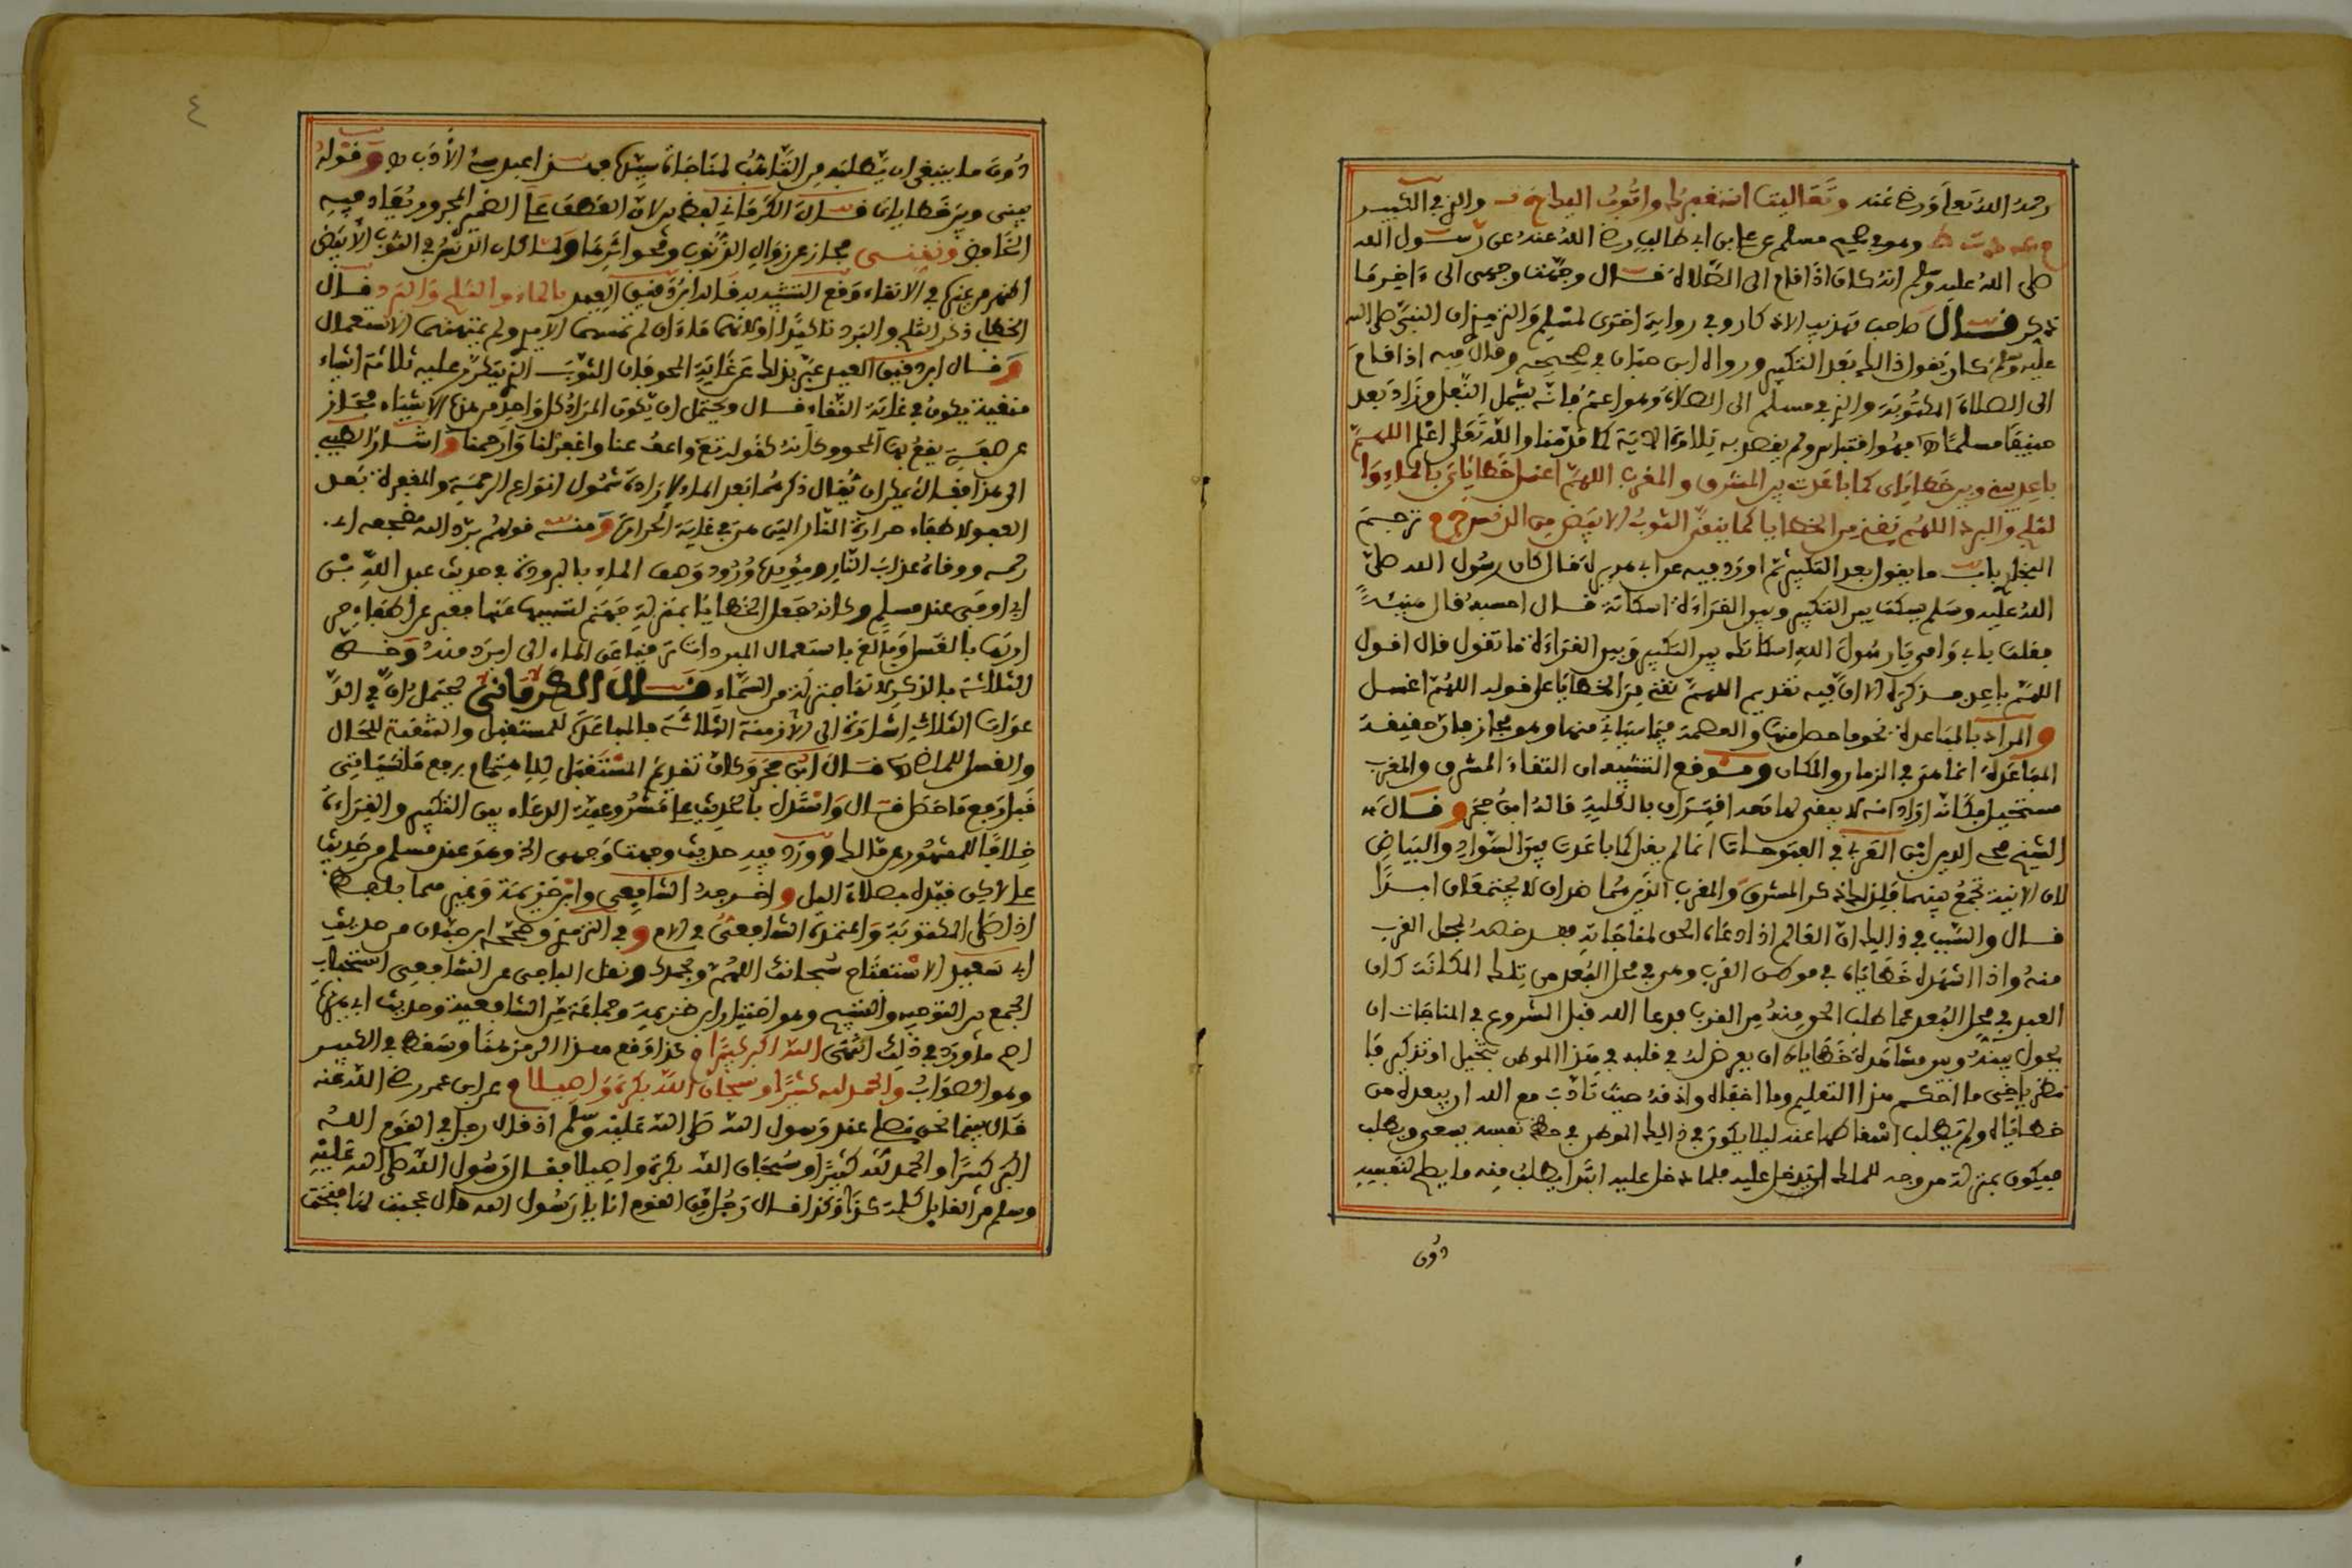 رحمه الله تعلى ورضي عنه وتعاليت استغفرك واتوب اليك والذي في الكبير
وهو في صحيح مسلم عن علي بن ابي طالب رضي الله عنه عن رسول الله
صلى الله عليه وسلم انه كان اذا قام الى الصلاة قال وجهت وجهي الى ءاخر ما
ذكر قال صاحب تهذيب الاذكار وفي رواية اخرى لمسلم والترمذي ان النبي صلى الله
عليه وسلم كان يقول ذالك بعد التكبير ورواه ابن حبان في صحيحه وقال فيه اذا قام
الى الصلاة المكتوبة والذي في مسلم الى الصلاة وهو اعم فانه يشمل النفل وزاد بعد
حنيفا مسلما فهو اقتباس ولم يقصد به تلاوة الاية كما قدمنا والله تعلى اعلم اللهم
باعد بيني وبين خطاياي كما باعدت بين المشرق والمغرب اللهم اغسل خطاياي بالماء وا
لثلج والبرد اللهم نقني من الخطايا كما ينقى الثوب الابيض من الدنس ترجم
البخاري باب ما يقول بعد التكبير ثم اورد فيه عن ابي هريرة قال كان رسول الله صلى
الله عليه وسلم يسكت بين التكبير وبين القراءة اسكاتة قال احسبه قال هنيئة
فقلت بابي وامي يا رسول الله اسكاتك بين التكبير وبين القراءة ما تقول قال اقول
اللهم باعد فذكره الا ان فيه تقديم اللهم نقني من الخطايا على قوله اللهم اغسل
والمراد بالمباعدة محو ما حصل منها والعصمة فيما سياتي منها وهو مجاز فان حقيقة
المباعدة انما هي في الزمان والمكان وموقع التشبيه ان التقاء المشرق والمغرب
مستحيل فكانه اراد انه لا يبقى لها بعد اقتراب بالكلية قاله ابن حجر وقال
الشيخ محي الدين ابن العربي في الفتوحات انما لم يقل كما باعدت بين السواد والبياض
لان الاينية تجمع بينهما فلذلك ذكر المشرق والمغرب الذين هما ضدان لا يجتمعان ابدا
قال والسبب في ذالك ان العالم اذا دعاه الحق لمناجاته فقد خصه بمحل القرب
منه واذا اشهده خطاياه في موطن القرب وهي في محل البعد من تلك المكانة كان
العبد في محل البعد مما طلب الحق منه من القرب فدعا الله قبل الشروع في المناجات ان
يحول بينه وبين مشاهدة خطاياه ان يعرض له في قلبه في هذا الموطن بتخيل او تذكر فا
نظر ياخي ما احكم هذا التعليم وما اخفاه واذقه حيث تادب مع الله ان يبعده من
خطاياه ولم يطلب اسقاطها عنه ليلا يكون في ذالك الموطن في حظ نفسه يسعى ويطلب
فيكون بمنزلة من وجه للملك ليدخل عليه فلما دخل عليه ابتدا يطلب منه ما يصلح لنفسه
دون
٤
دون ما ينبغي ان يطلبه من التاهب لمناجاة سيده فهذا عبد سيئ الادب وقوله
بيني وبين خطاياي قال الكرماني لفظ بين لان العطف على الضمير المجرور يعاد فيه
الخافض ونقني مجاز عن زوال الذنوب ومحو اثرها ولما كان الدنس في الثوب الابيض
اظهر من غيره في الانقاء وقع التشبيه به قاله ابن دقيق العيد بالماء والثلج والبرد قال
الخطابي ذكر الثلج والبرد تاكيدا اولانهما ماءان لم تمسهما الايدي ولم يمتهنهما الاستعمال
وقال ابن دقيق العيد عبر بذالك عن غاية المحو فان الثوب الذي يتكرر عليه ثلاثة اشياء
منقية يكون في غاية النقاء قال ويحتمل ان يكون المراد كل واحد من هذه الاشياء مجاز
عن صفة يقع بها المحو وكانه كقوله تعلى واعف عنا واغفر لنا وارحمنا واشار الطيبي
الى هذا فقال يمكن ان يقال ذكرهما بعد الماء لارادة شمول انواع الرحمة والمغفرة بعد
العفو لاطفاء حرارة النار التي هي في غاية الحرارة ومنه قولهم برد الله مضجعه اي
رحمه ووقاه عذاب النار ويؤيده ورود وصف الماء بالبرودة في حديث عبد الله بن
ابي اوفى عند مسلم وكانه جعل الخطايا بمنزلة جهنم لتسببها عنها فعبر عن اطفاء حر
ارتها بالغسل وبالغ باستعمال المبردات ترقيا عن الماء الى ابرد منه وخص
الثلاثة بالذكر لانها منزلة من السماء قال الكرماني يحتمل ان في الد
عوات الثلاث اشارة الى الازمنة الثلاثة فالمباعدة للمستقبل والتنقية للحال
والغسل للماضي قال ابن حجر وكان تقديم المستقبل للاهتمام برفع ما سياتي
قبل رفع ما حصل قال واستدل بالحديث على مشروعية الدعاء بين التكبير والقراءة
خلافا للمشهور عن مالك وورد فيه حديث وجهت وجهي الخ وهو عند مسلم من حديث
علي لاكن قيده بصلاة اليل واخرجه الشافعي وابن خزيمة وغيرهما بلفظ
اذا صلى المكتوبة واعتمده الشافعي في الام وفي الترمذي وصحيح ابن حبان من حديث
ابي سعيد الاستفتاح سبحانك اللهم وبحمدك ونقل الباجي عن الشافعي استحباب
الجمع بين التوجيه والتسبيح وهو اختيار ابن خزيمة وجماعة من الشافعية وحديث ابي هريرة
اصح ما ورد في ذالك انتهى الله اكبر كبيرا كذا وقع هذا الرمز هنا وسقط في الكبير
وهو الصواب والحمد لله كثيرا وسبحان الله بكرة واصيلا عن ابن عمر رضي الله عنه
قال بينما نحن نصلي عند رسول الله صلى الله عليه وسلم اذ قال رجل في القوم الله
اكبر كبيرا والحمد لله كثيرا وسبحان الله بكرة واصيلا فقال رسول الله صلى الله عليه
وسلم من القايل كلمة كذا وكذا قال رجل من القوم انا يا رسول الله قال عجبت لها فتحت